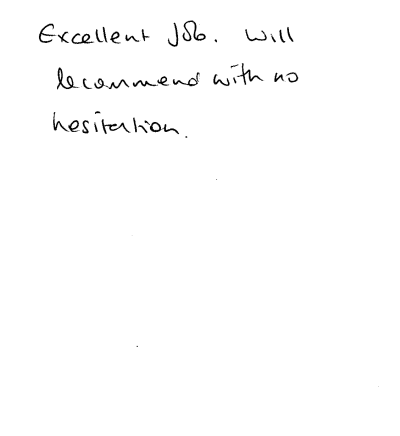 Excellent Job. Will
recommend with no
hesitation.